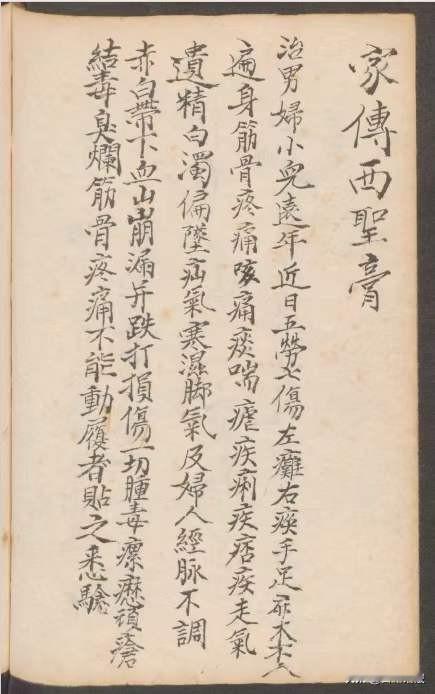 家傳西聖膏
治男婦小兒遠年近日五勞七傷左癱右瘓手足麻木
遍身筋骨疼痛咳痛痰喘瘧疾痢疾痞疾走氣
遺精白濁偏墜疝氣寒濕脚氣及婦人經脉不調
赤白帶下血山崩漏并跌打損傷一切腫毒瘰癧頑瘡
結毒臭爛筋骨疼痛不能動履者貼之悉驗